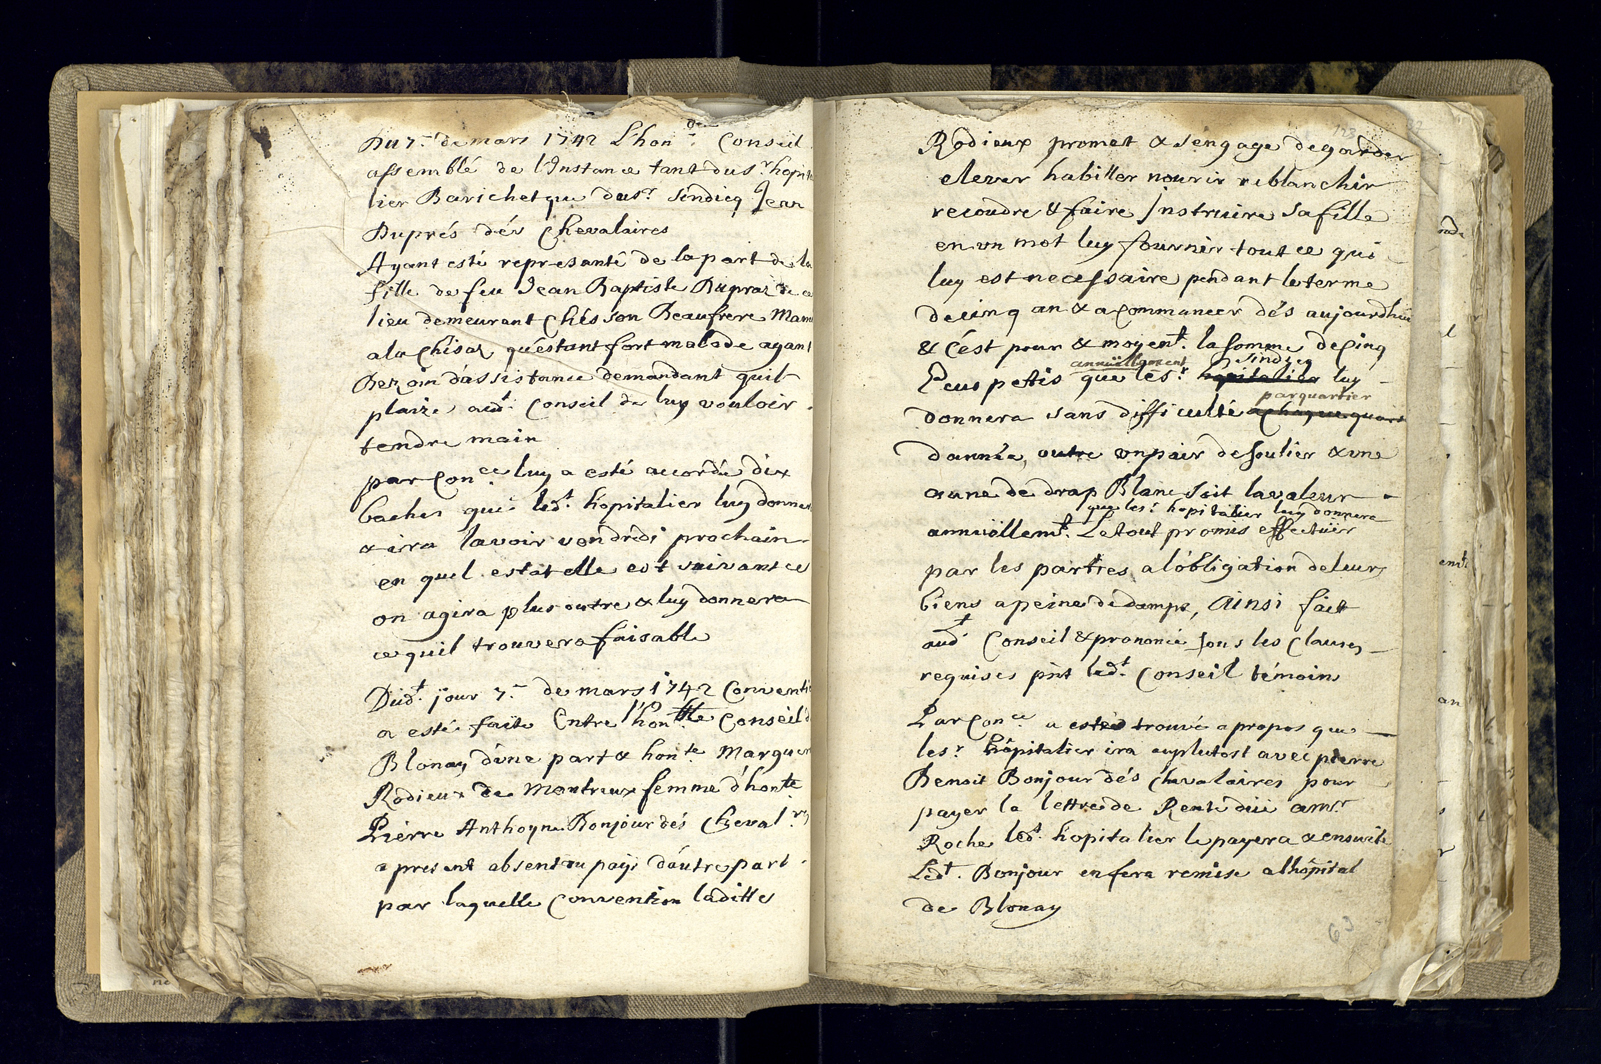 Du 7.e de mars 1742 L'hon.ble Conseil
assemblé de l'Instance tant du s.r hopita
lier Barichet que du s.r sindicq Jean
Duprés dés Chevalaires
Ayant esté representé de la part de la
fille de feu Jean Baptiste Dupraz de ce
lieu demeurant Chés son Beaufrere Mam
a la Chisaz qu'estant fort malade ayant
Bezoin d'assistance demandant quil
plaize aud.t Conseil de luy vouloir
tendre main
par Con.ce luy a esté accordé dix
baches que led.t hopitalier luy donner
& ira la voir vendredi prochain
en quel estat elle est suivant ce
on agira plus outre & luy donnera
ce quil trouvera faisable
Dud.t jour 7.e de mars 1742 Conventi
a esté faite Entre l'hon.ble Conseil d
Blonay d'une part & hon.te Marguer
Rodieux de Montreux femme d'hon.te
Pierre Anthoyne Bonjour dés Cheval.res
a present absent du pays d'autre part
par laquelle Convention laditte
Rodieux promet & s'engage de garder
elever habiller nourir reblanchir
recoudre & faire Instruire sa fille
en un mot luy fournir tout ce qui
luy est necessaire pendant le terme
de cinq an & a commancer dés aujourdhui
& C'est pour & moyen.t la somme de Cinq
annuëllement sindicq
Ecus petis que le s.r hopitalier luy
par quartier
donnera sans difficulté a chaque quart
d'année, outre un pair de soulier & une
aune de drap Blanc soit la valeur
que le s.r hopitalier luy donnera
annuëllem.t Le tout promis effectuer
par les parties a l'obligation de leurs
biens a peine de damps, Ainsi fait
aud.t Conseil & prononcé sous les Clauses
requises pñt led.t Conseil témoins
Par Con.ce a esté trouvé a propos que
le s.r hôpitalier ira auplutost avec pierre
Benoit Bonjour dés Chevalaires pour
payer la lettre de Rente düe a m.r
Roche led.t hopitalier le payera & ensuite
Led.t Bonjour en fera remise a l'hôpital
de Blonay
63